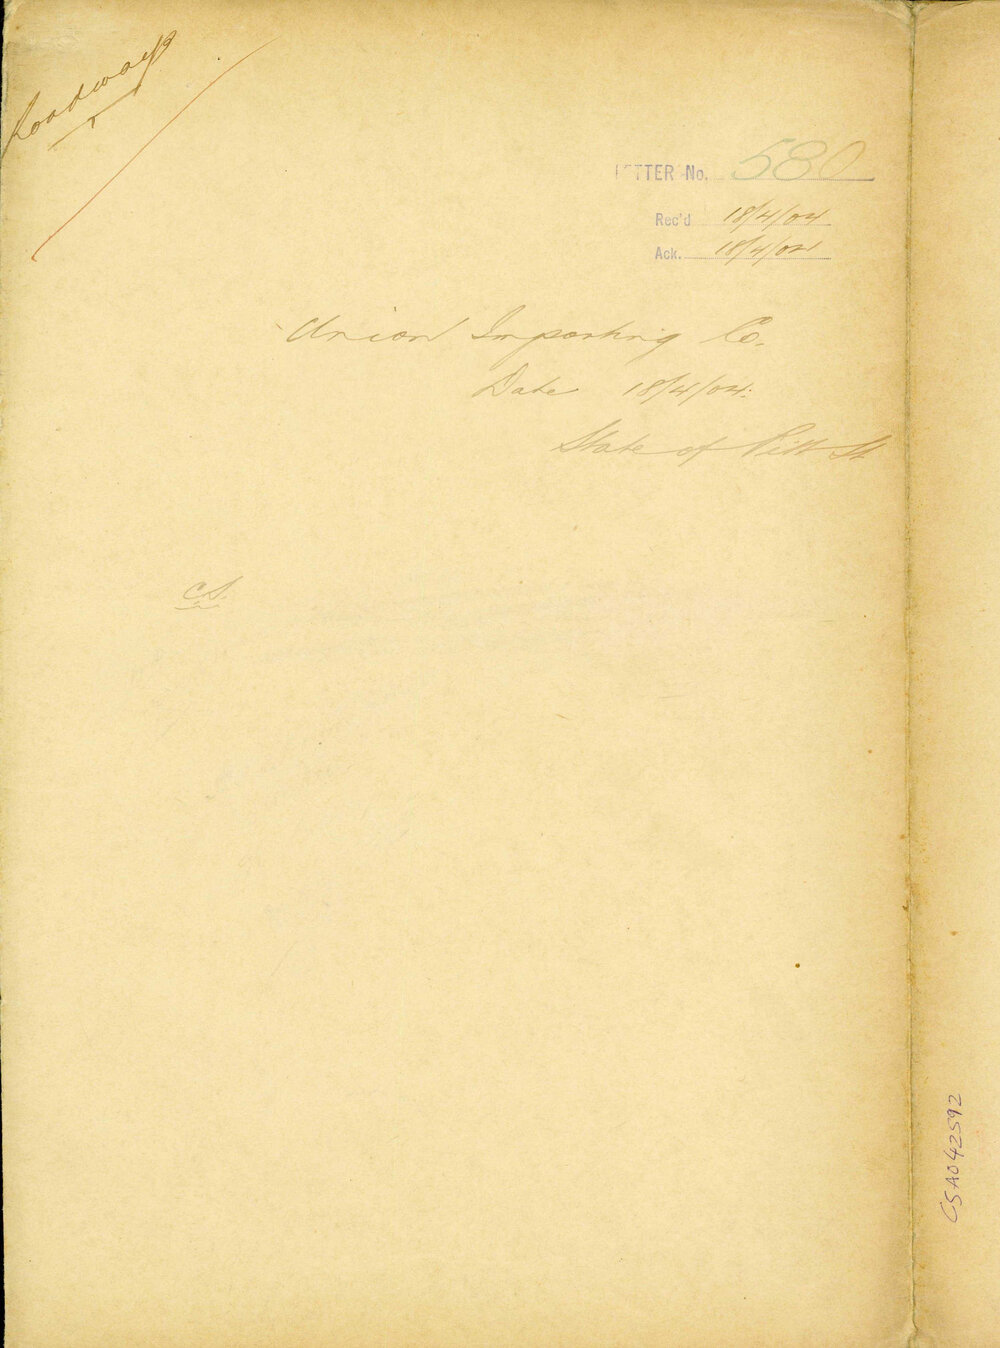 Roadways
LETTER No. 580
Rec'd 18/4/04
Ack. 18/4/04
Union Importing Co.
Date 18/4/04.
State of Pitt St
C.S.
CSA042592